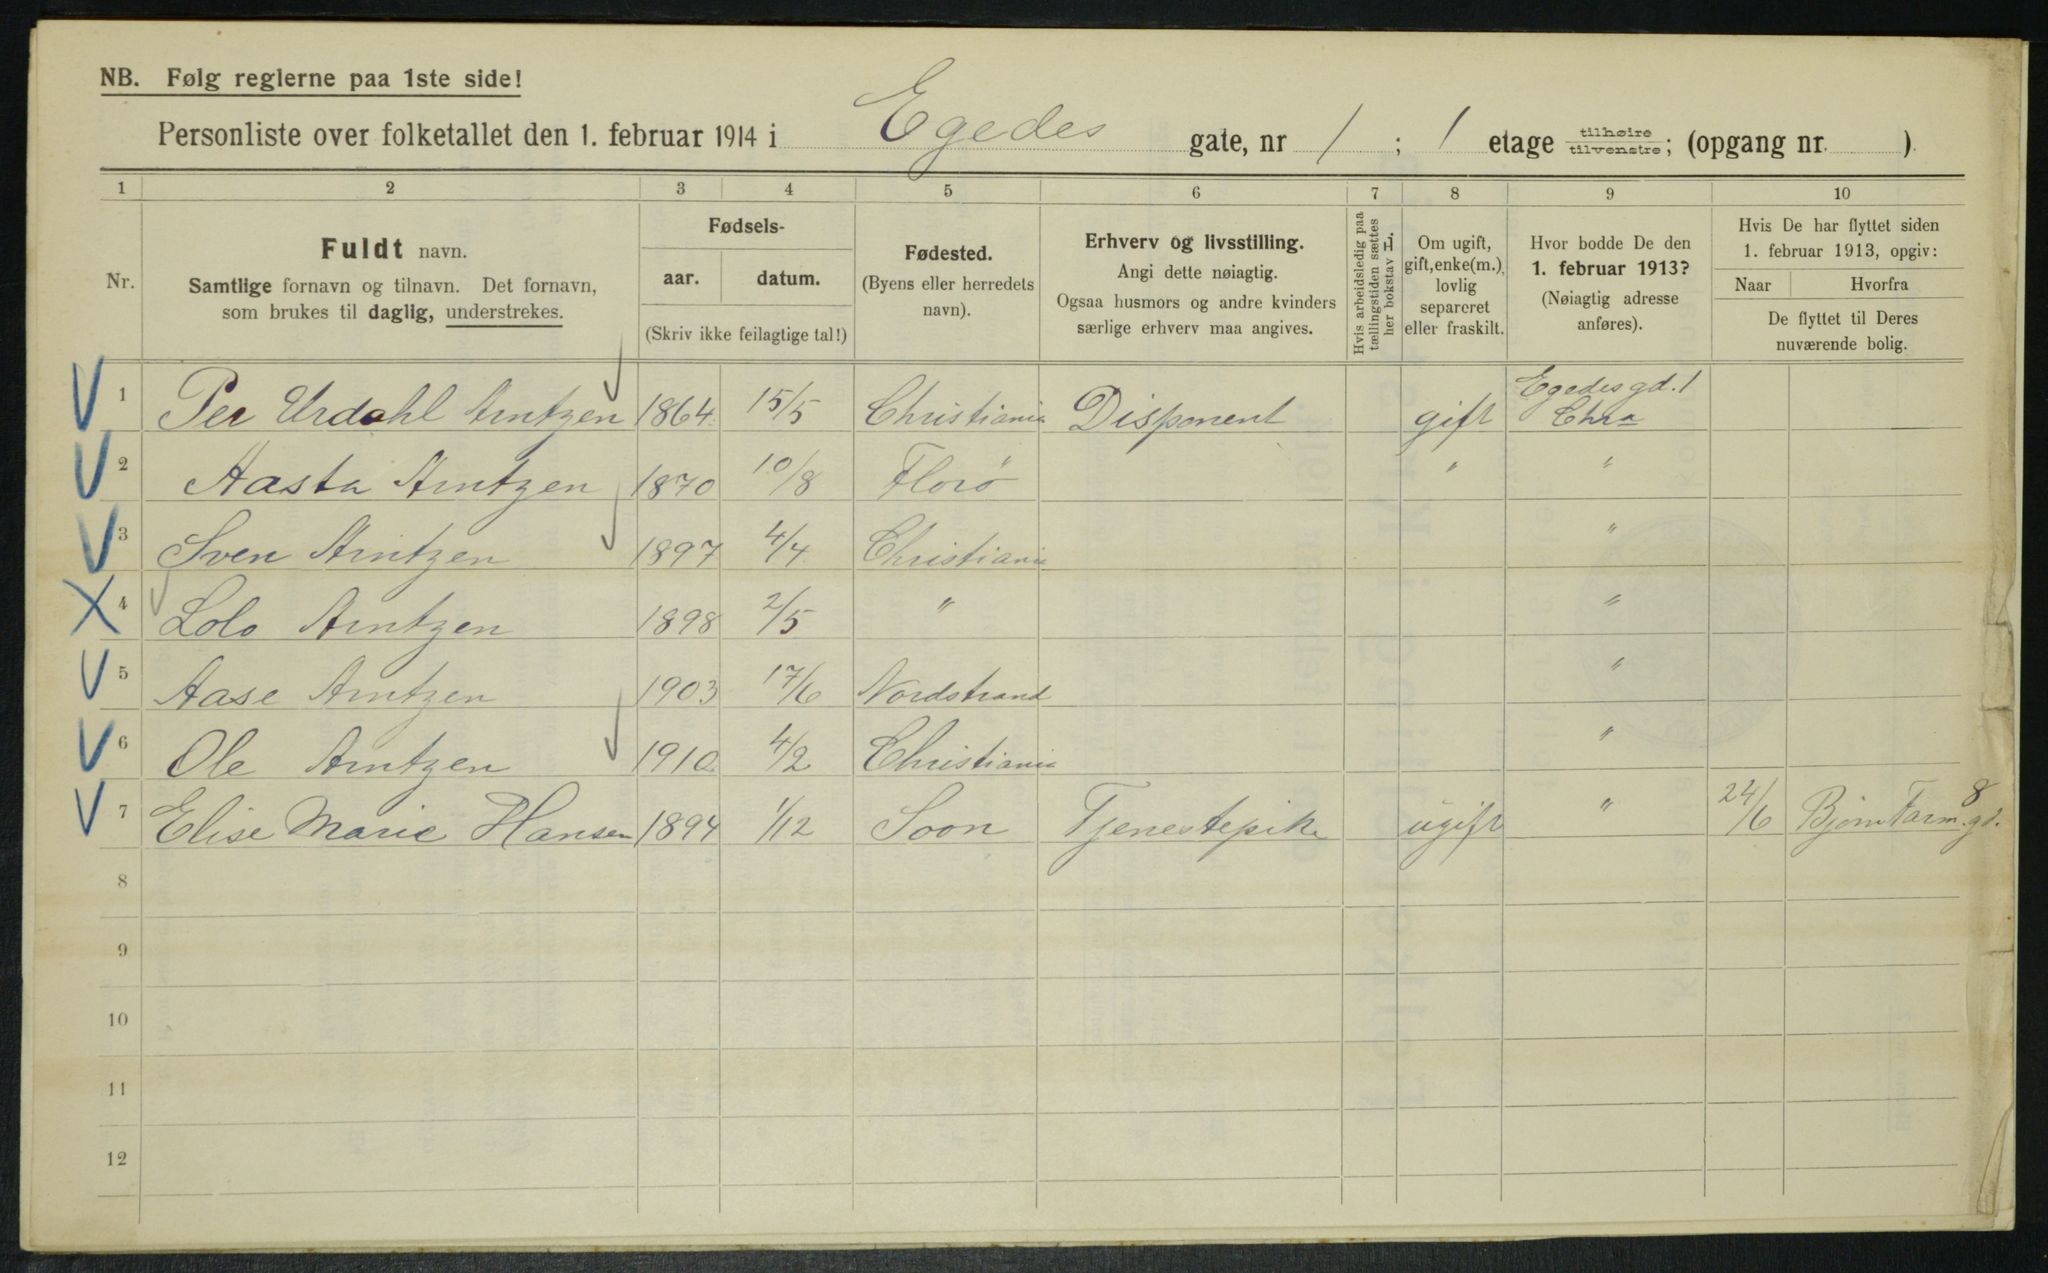 NB. Følg reglerne paa 1ste side!
Personliste over folketallet den 1. februar 1914 i Egedes gate, nr 1 ; 1 etage tilhøire / tilvenstre; (opgang nr. ).
1 2 3 4 5 6 7 8 9 10
Nr.
Fuldt navn.
Samtlige fornavn og tilnavn. Det fornavn,
som brukes til daglig, understrekes.
Fødsels-
aar. datum.
(Skriv ikke feilagtige tal!)
Fødested.
(Byens eller herredets
navn).
Erhverv og livsstilling.
Angi dette nøiagtig.
Ogsaa husmors og andre kvinders
særlige erhverv maa angives.
Hvis arbeidsledig paa
tællingstiden sættes
her bokstav L.
Om ugift,
gift, enke(m.),
lovlig
separeret
eller fraskilt.
Hvor bodde De den
1. februar 1913?
(Nøiagtig adresse
anføres).
Hvis De har flyttet siden
1. februar 1913, opgiv:
Naar Hvorfra
De flyttet til Deres
nuværende bolig.
1 Per Urdahl Arntzen 1864 15/5 Christiania Disponent gift Egedes gd. 1 Chra
2 Aasta Arntzen 1870 10/8 Florö " "
3 Sven Arntzen 1897 4/4 Christiania "
4 Lolo Arntzen 1898 2/5 " "
5 Aase Arntzen 1903 17/6 Nordstrand "
6 Ole Arntzen 1910 4/2 Christiania "
7 Elise Marie Hansen 1894 1/12 Soon Tjenestepike ugift " 24/6 Bjørn Farm. gd. 8
8
9
10
11
12